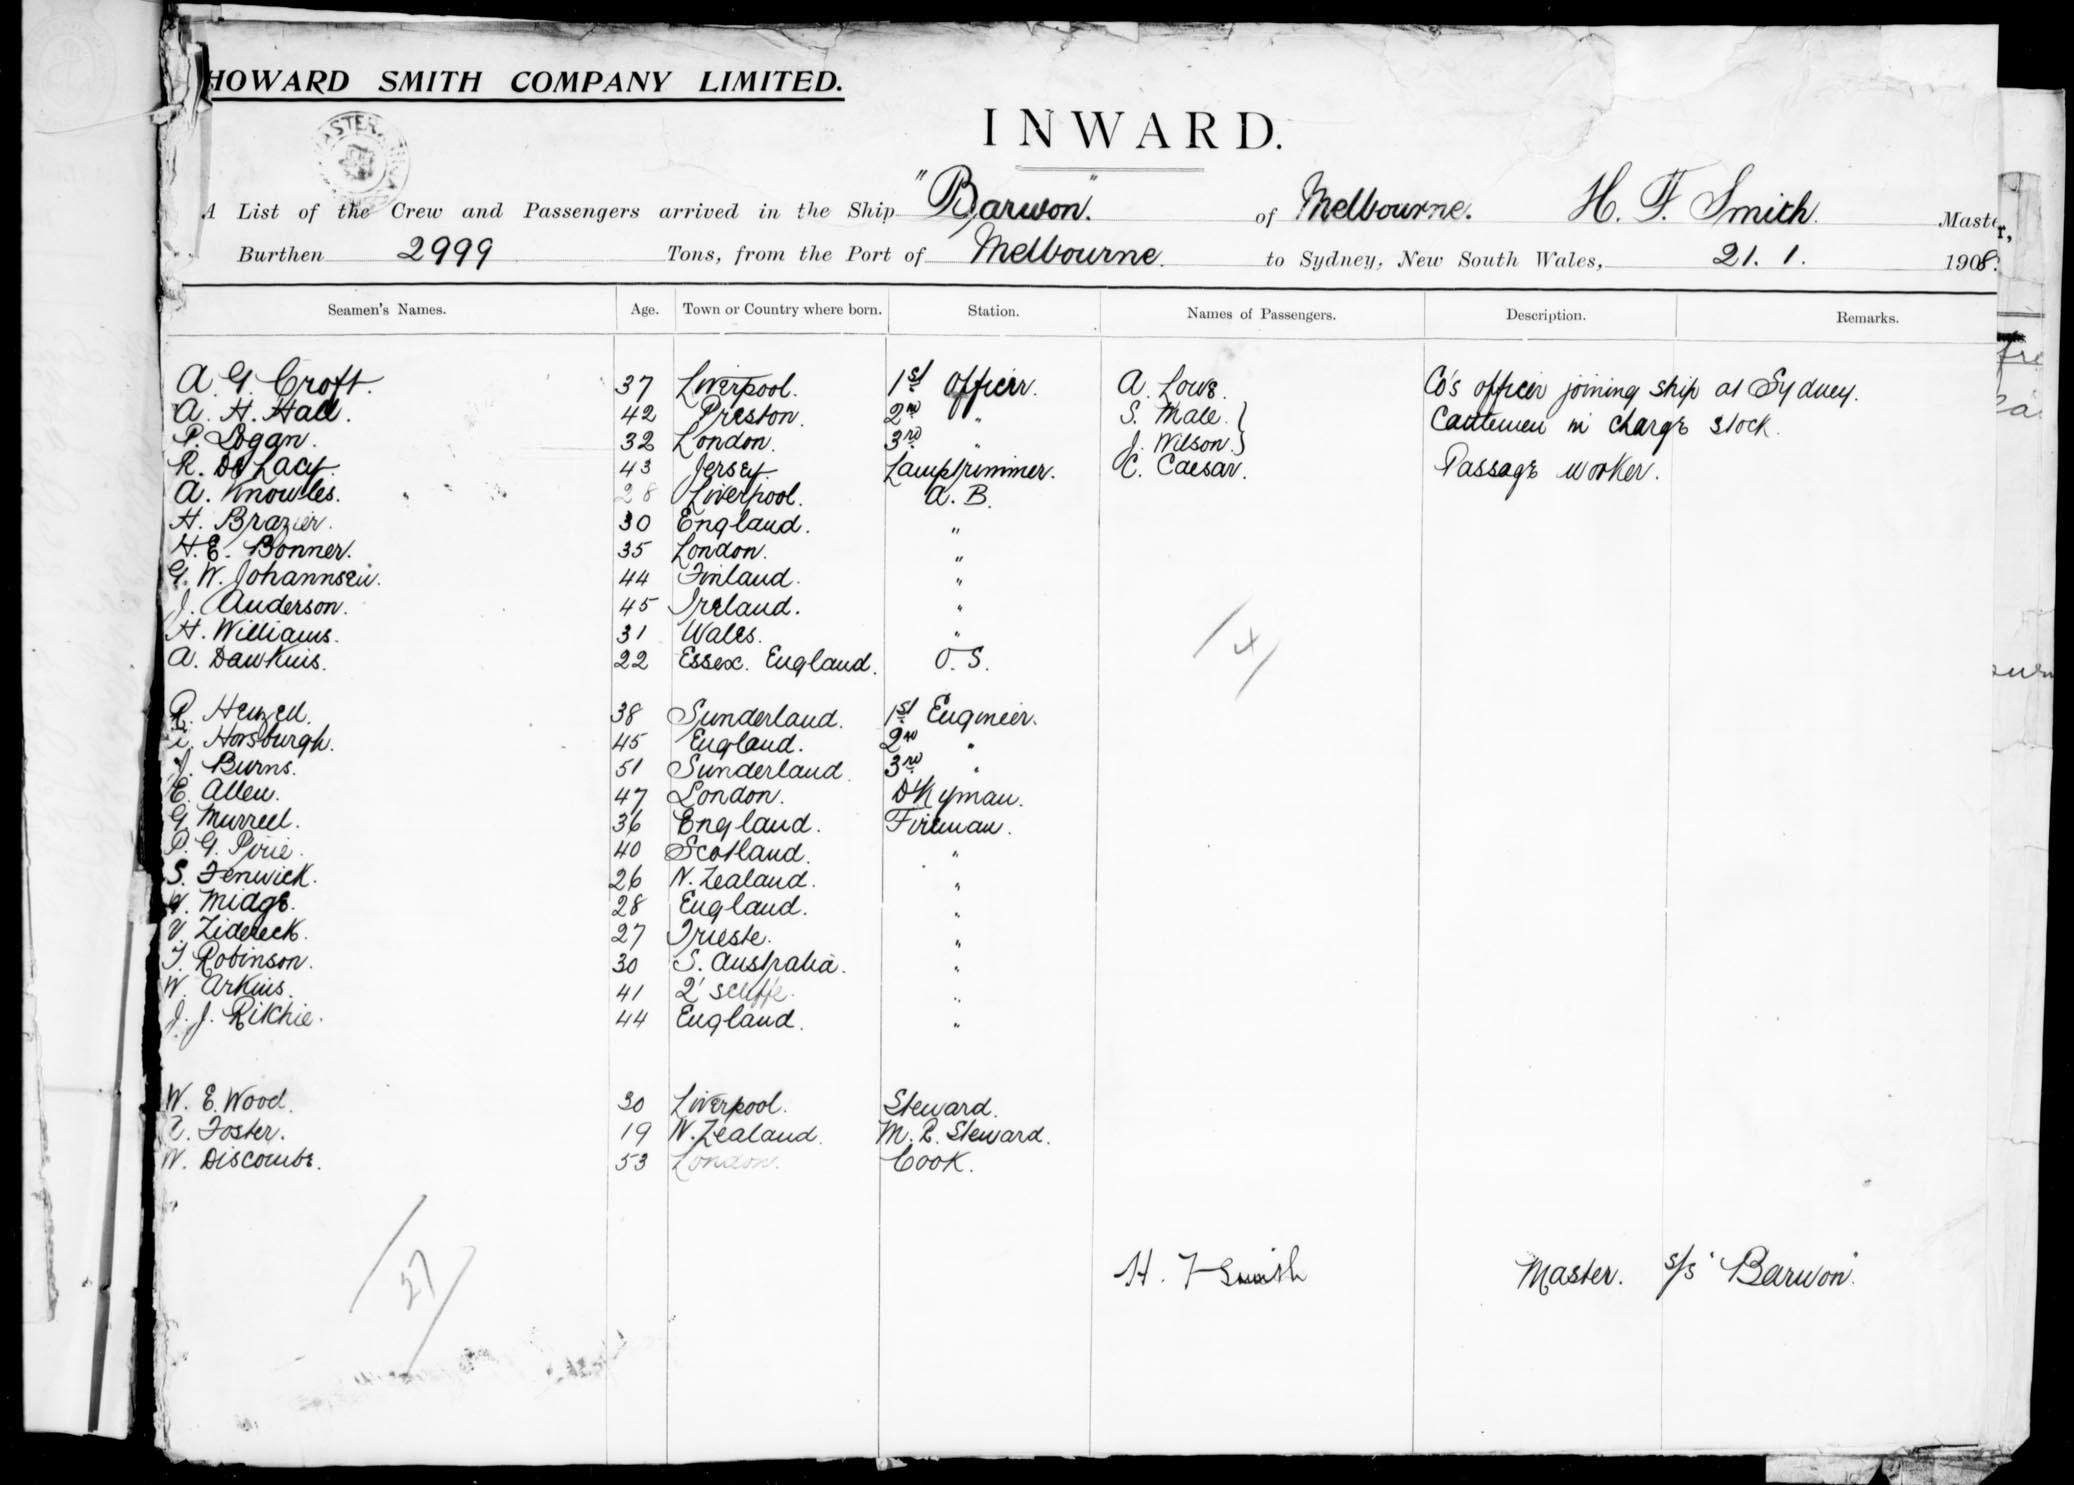 HOWARD SMITH COMPANY LIMITED.
INWARD.
A List of the Crew and Passengers arrived in the Ship "Barwon." of Melbourne. H. F. Smith. Master,
Burthen 2999 Tons, from the Port of Melbourne. to Sydney, New South Wales, 21. 1. 1908.
Seamen's Names. Age. Town or Country where born. Station. Names of Passengers. Description. Remarks.
A. G. Croft. 37 Liverpool. 1st Officer. A. Lowe. Co's officer joining ship at Sydney.
A. H. Hall. 42 Preston. 2nd " S. Male. } Cattlemen in charge stock.
P. Logan. 32 London. 3rd " J. Wilson. }
R. De Lacy. 43 Jersey. Lamptrimmer. C. Caesar. Passage worker.
A. Knowles. 28 Liverpool. A. B.
H. Brazier. 30 England. "
H. E. Bonner. 35 London. "
G. W. Johannsen. 44 Finland. "
J. Anderson. 45 Ireland. "
H. Williams. 31 Wales. "
A. Dawkins. 22 Essex. England. O. S.
R. Henzell. 38 Sunderland. 1st Engineer.
Horsburgh. 45 England. 2nd "
J. Burns. 51 Sunderland. 3rd "
E. Allen. 47 London. Dkyman.
G. Murrell. 36 England. Fireman.
P. G. Pirie. 40 Scotland. "
S. Fenwick. 26 N. Zealand. "
Midge. 28 England. "
V. Zidereck. 27 Trieste. "
F. Robinson. 30 S. Australia. "
W. Arkins. 41 Q'scliffe. "
J. J. Ritchie. 44 England. "
W. E. Wood. 30 Liverpool. Steward.
Foster. 19 N. Zealand. M. R. Steward.
W. Discombe. 53 London. Cook.
/4/
/27/
H. F Smith Master. s/s "Barwon".